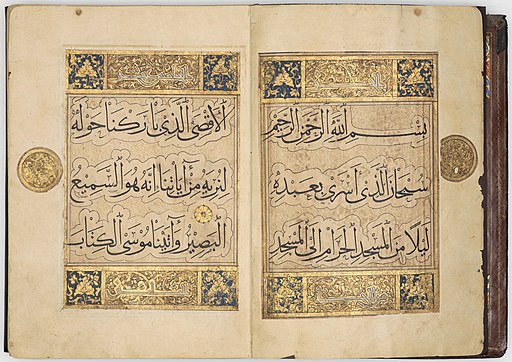 بسم الله الرحمن الرحيم
سبحان الذي أسرى بعبده
ليلا من المسجد الحرام إلى المسجد
الأقصى الذي باركنا حوله
لنريه من آياتنا إنه هو السميع
البصير وآتينا موسى الكتاب